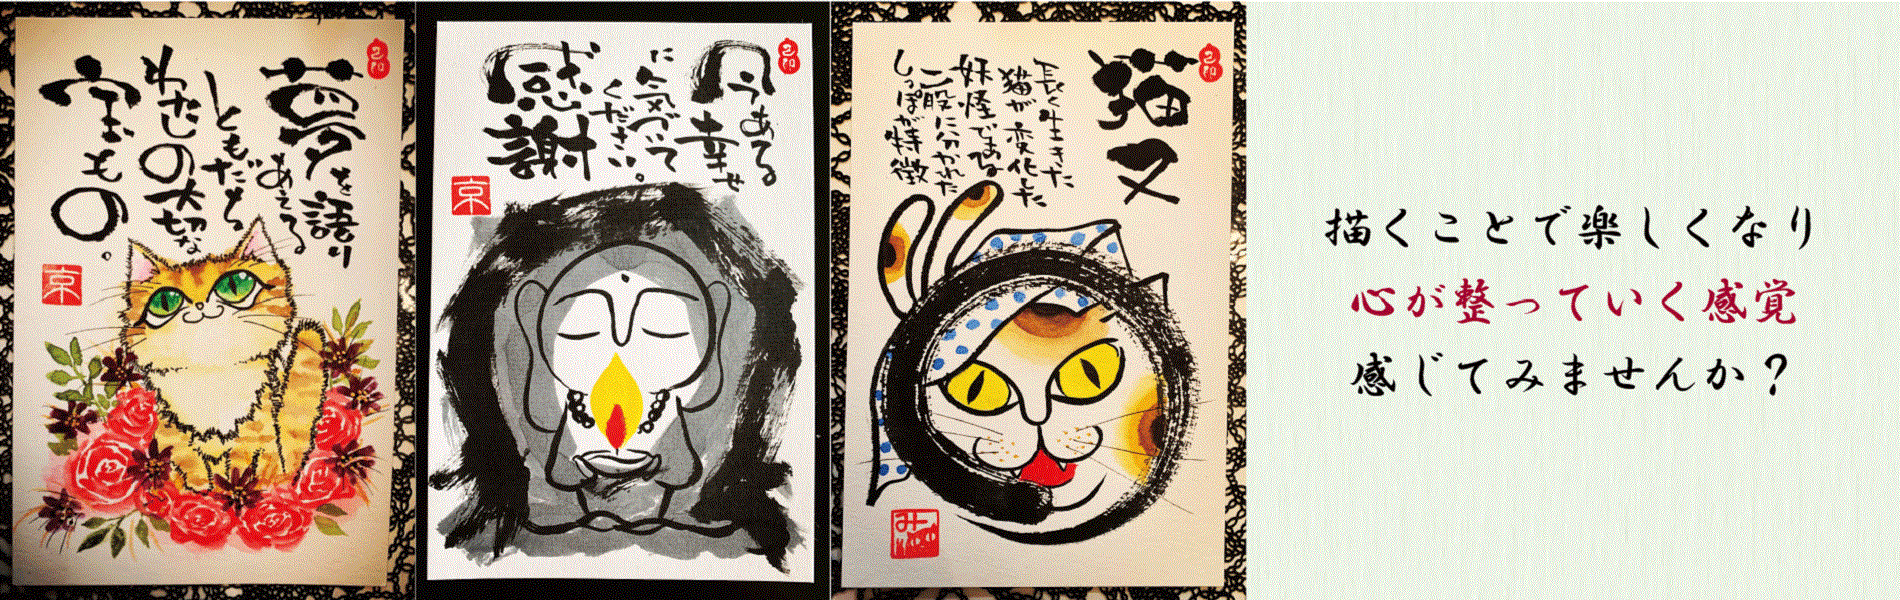 夢を語り
あえる
ともだち
わたしの大切な
宝もの。
京
今ある幸せ
に気づいて
ください。
感謝
京
猫又
長く生きた
猫が変化した
妖怪である
二股に分かれた
しっぽが特徴
描くことで楽しくなり
心が整っていく感覚
感じてみませんか？